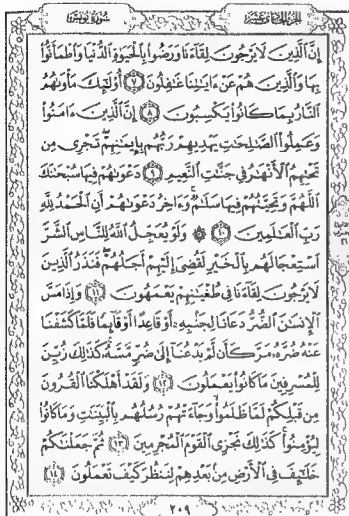 الجزء الحادي عشر
سورة يونس
إِنَّ ٱلَّذِينَ لَا يَرْجُونَ لِقَآءَنَا وَرَضُوا۟ بِٱلْحَيَوٰةِ ٱلدُّنْيَا وَٱطْمَأَنُّوا۟
بِهَا وَٱلَّذِينَ هُمْ عَنْ ءَايَـٰتِنَا غَـٰفِلُونَ ٧ أُو۟لَـٰٓئِكَ مَأْوَىٰهُمُ
ٱلنَّارُ بِمَا كَانُوا۟ يَكْسِبُونَ ٨ إِنَّ ٱلَّذِينَ ءَامَنُوا۟
وَعَمِلُوا۟ ٱلصَّـٰلِحَـٰتِ يَهْدِيهِمْ رَبُّهُم بِإِيمَـٰنِهِمْ تَجْرِى مِن
تَحْتِهِمُ ٱلْأَنْهَـٰرُ فِى جَنَّـٰتِ ٱلنَّعِيمِ ٩ دَعْوَىٰهُمْ فِيهَا سُبْحَـٰنَكَ
ٱللَّهُمَّ وَتَحِيَّتُهُمْ فِيهَا سَلَـٰمٌ وَءَاخِرُ دَعْوَىٰهُمْ أَنِ ٱلْحَمْدُ لِلَّهِ
رَبِّ ٱلْعَـٰلَمِينَ ١٠ ۞ وَلَوْ يُعَجِّلُ ٱللَّهُ لِلنَّاسِ ٱلشَّرَّ
ٱسْتِعْجَالَهُم بِٱلْخَيْرِ لَقُضِىَ إِلَيْهِمْ أَجَلُهُمْ فَنَذَرُ ٱلَّذِينَ
لَا يَرْجُونَ لِقَآءَنَا فِى طُغْيَـٰنِهِمْ يَعْمَهُونَ ١١ وَإِذَا مَسَّ
ٱلْإِنسَـٰنَ ٱلضُّرُّ دَعَانَا لِجَنۢبِهِۦٓ أَوْ قَاعِدًا أَوْ قَآئِمًا فَلَمَّا كَشَفْنَا
عَنْهُ ضُرَّهُۥ مَرَّ كَأَن لَّمْ يَدْعُنَآ إِلَىٰ ضُرٍّ مَّسَّهُۥ كَذَٰلِكَ زُيِّنَ
لِلْمُسْرِفِينَ مَا كَانُوا۟ يَعْمَلُونَ ١٢ وَلَقَدْ أَهْلَكْنَا ٱلْقُرُونَ
مِن قَبْلِكُمْ لَمَّا ظَلَمُوا۟ وَجَآءَتْهُمْ رُسُلُهُم بِٱلْبَيِّنَـٰتِ وَمَا كَانُوا۟
لِيُؤْمِنُوا۟ كَذَٰلِكَ نَجْزِى ٱلْقَوْمَ ٱلْمُجْرِمِينَ ١٣ ثُمَّ جَعَلْنَـٰكُمْ
خَلَـٰٓئِفَ فِى ٱلْأَرْضِ مِنۢ بَعْدِهِمْ لِنَنظُرَ كَيْفَ تَعْمَلُونَ ١٤
٢٠٩